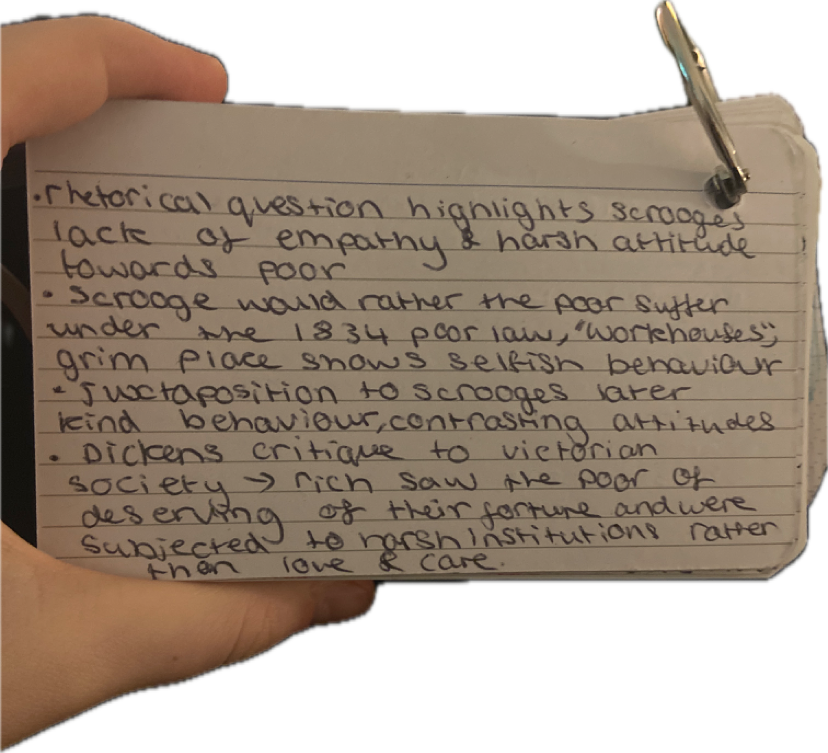 • rhetorical question highlights scrooges
lack of empathy & harsh attitude
towards poor
• Scrooge would rather the poor suffer
under the 1834 poor law, "workhouses";
grim place shows selfish behaviour
• juxtaposition to scrooges later
kind behaviour, contrasting attitudes
• Dickens critique to victorian
society → rich saw the poor of
deserving of their fortune and were
subjected to harsh institutions ratter
than love & care.